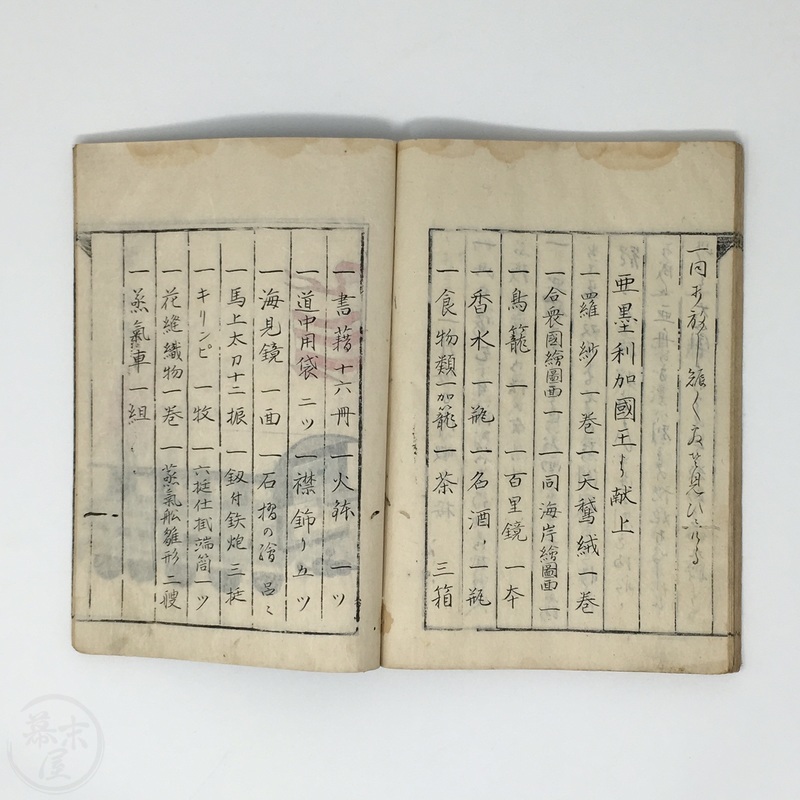 亜墨利加國王ゟ献上
一羅紗 一巻 一天鵞絨 一巻
一合衆國繪圖面 一 一同海岸繪圖面 一
一鳥籠 一 一百里鏡 一本
一香水 一瓶 一名酒 一瓶
一食物類 一加籠 一茶 三箱
一書籍 十六冊 一火鉢 一ツ
一道中用袋 二ツ 一襟飾り 五ツ
一海見鏡 一面 一石摺の繪 品〻
一馬上太刀 十二振 一釼付鉄炮 三挺
一キリンピ 一牧 一六挺仕掛端筒 一ツ
一花縫織物 一巻 一蒸氣舩雛形 二艘
一蒸氣車 一組
幕末屋